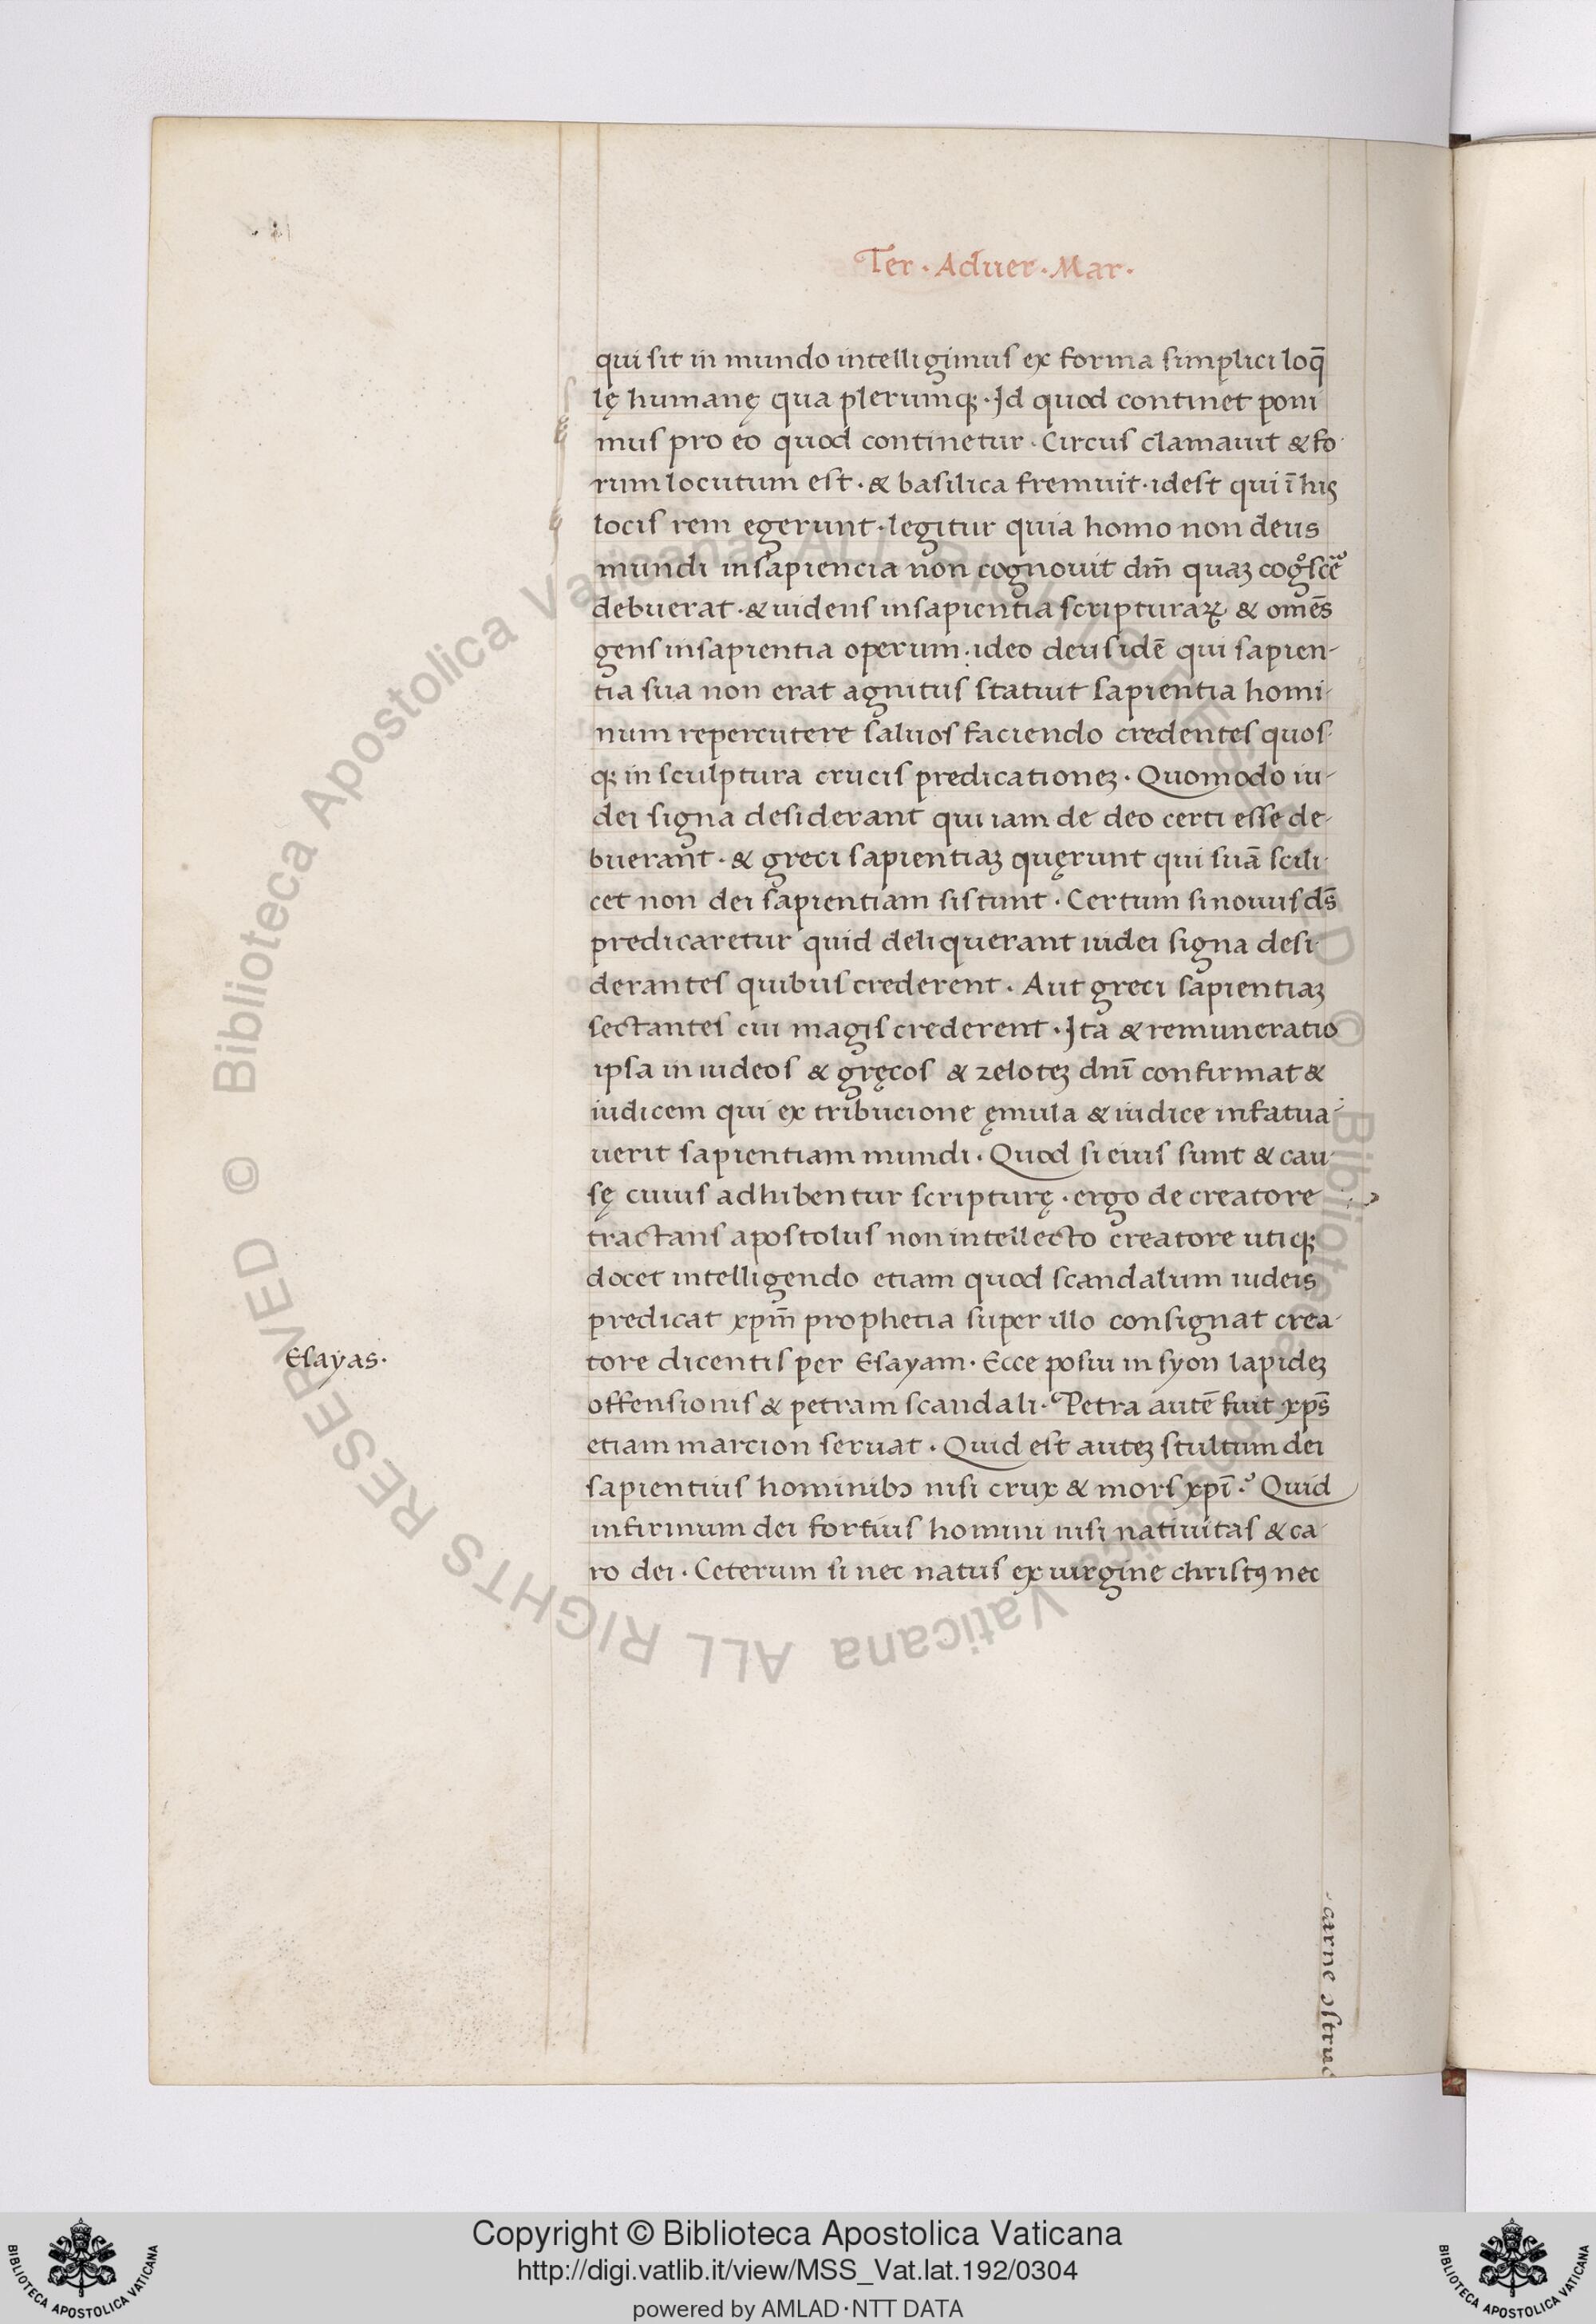 Ter · Aduer · Mar ·
qui sit in mundo intelligimus ex forma simplici loq̄
lę humanę qua plerumqꝫ · Id quod continet poni
mus pro eo quod continetur · Circus clamauit & fo
rum locutum est · & basilica fremuit · idest qui ī his
locis rem egerunt · legitur quia homo non deus
mundi in sapiencia non cognouit dm̄ quaꝫ
debuerat · & uidens in sapientia scripturaꝝ & om̄es
gens in sapientia operum · ideo deus idē qui sapien-
tia sua non erat agnitus statuit sapientia homi-
num repercutere saluos faciendo credentes quos-
qꝫ in sculptura crucis predicationeꝫ · Quomodo iu-
dei signa desiderant qui iam de deo certi esse de-
buerant · & greci sapientiaꝫ quęrunt qui suā scili-
cet non dei sapientiam sistunt · Certum si nouus ds̄
predicaretur quid deliquerant iudei signa desi-
derantes quibus crederent · Aut greci sapientiaꝫ
sectantes cui magis crederent · Ita & remuneratio
ipsa in iudeos & gręcos & zeloteꝫ dnī confirmat &
iudicem qui ex tribucione ęmula & iudice infatua-
uerit sapientiam mundi · Quod si eius sunt & cau-
sę cuius adhibentur scripturę · ergo de creatore
tractans apostolus non intellecto creatore utiqꝫ
docet intelligendo etiam quod scandalum iudeis
predicat xpm̄ prophetia super illo consignat crea-
Esayas ·
tore dicentis per Esayam · Ecce posui in syon lapideꝫ
offensionis & petram scandali · Petra autē fuit xps̄
etiam marcion seruat · Quid est auteꝫ stultum dei
sapientius hominibꝰ nisi crux & mors xpī · Quid
infirmum dei fortius homini nisi natiuitas & ca-
ro dei · Ceterum si nec natus ex uirgine christꝰ nec
- carne ɔstruc
© Biblioteca Apostolica Vaticana ALL RIGHTS RESERVED © Biblioteca Apostolica Vaticana ALL RIGHTS RESERVED
Copyright © Biblioteca Apostolica Vaticana
http://digi.vatlib.it/view/MSS_Vat.lat.192/0304
powered by AMLAD·NTT DATA
BIBLIOTECA APOSTOLICA VATICANA
BIBLIOTECA APOSTOLICA VATICANA